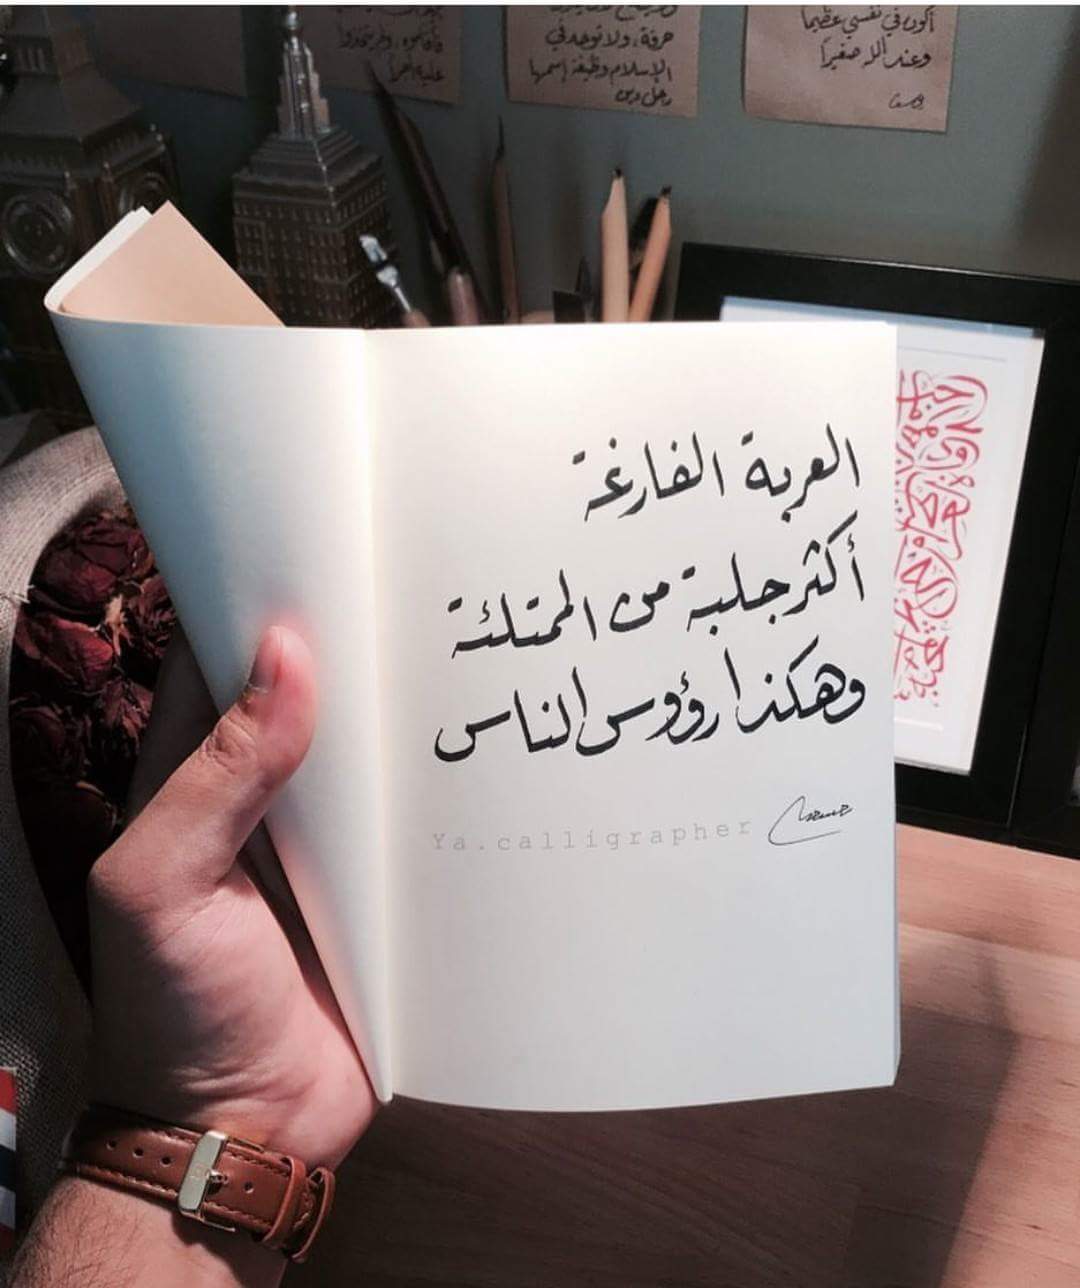 حرفة، ولا توجد في
الإسلام وظيفة إسمها
رجل دين
أكون في نفسي عظيما
وعند الله صغيرا
العربة الفارغة
أكثر جلبة من الممتلئة
وهكذا رؤوس الناس
Ya.calligrapher